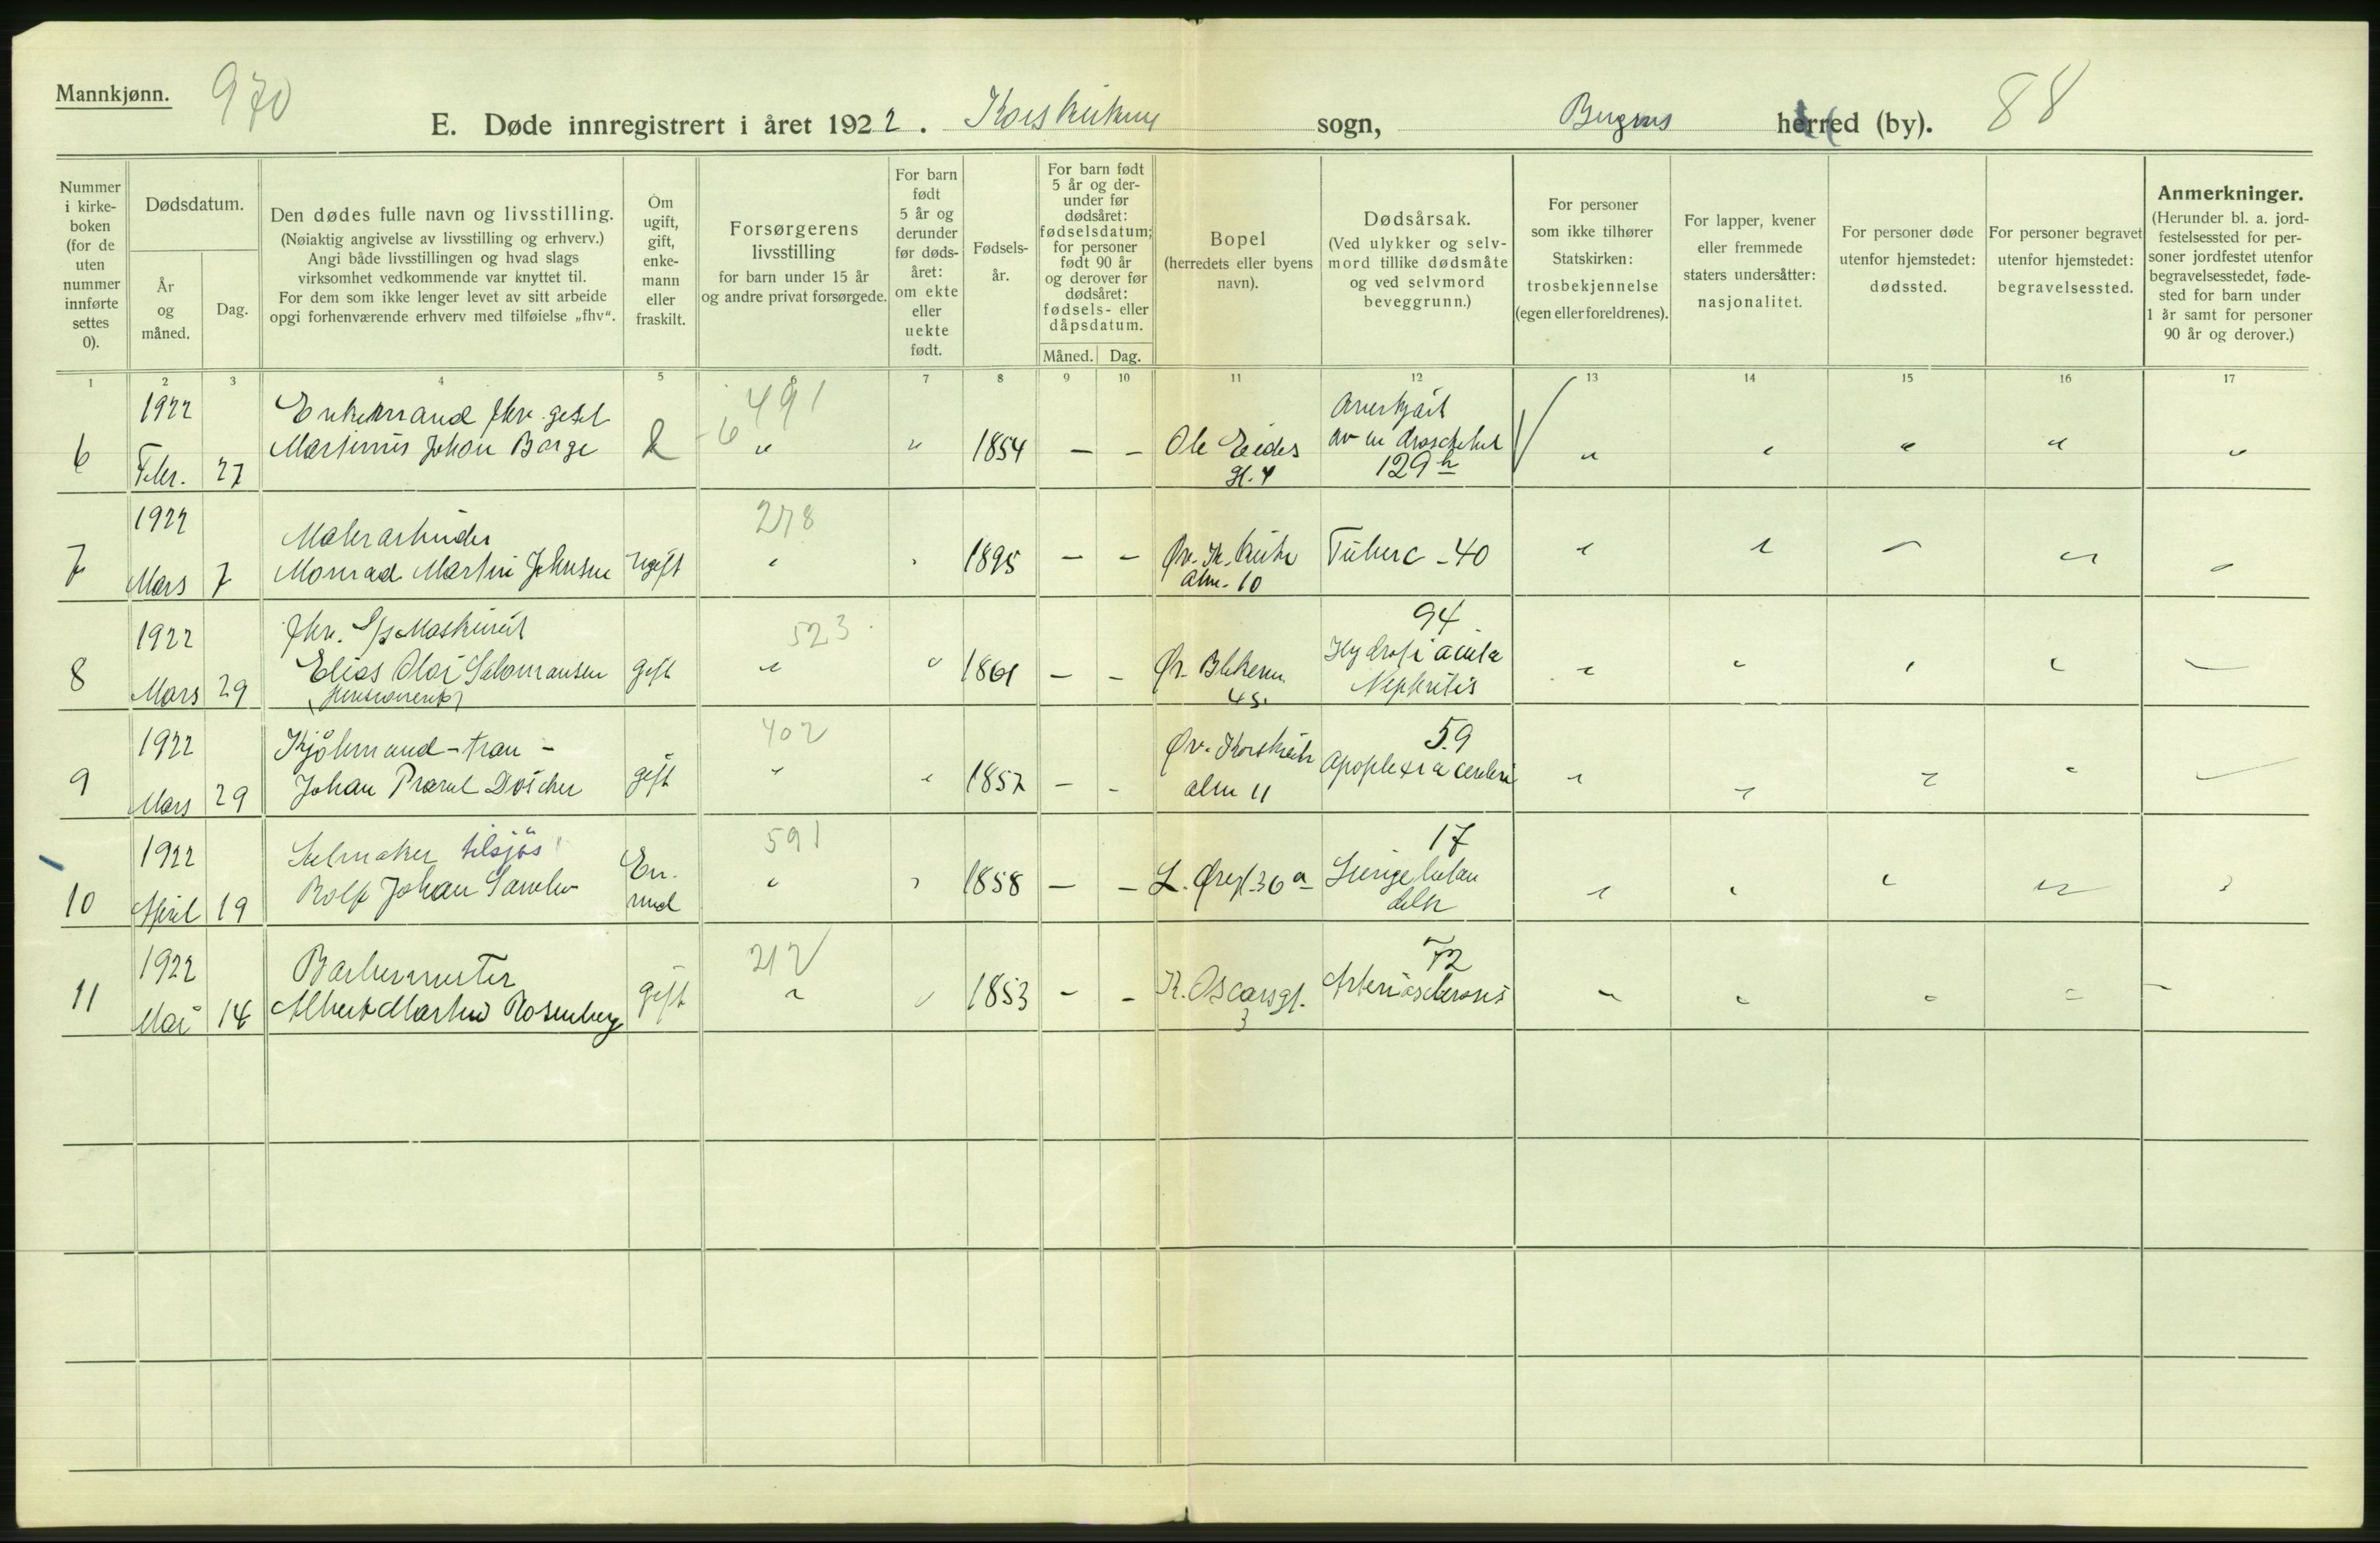 Mannkjønn.
970
E. Døde innregistrert i året 1922. Korskirkens sogn, Bergens herred (by).
88
Nummer i kirke-boken (for de uten nummer innførte settes 0).
Dødsdatum.
År og måned.
Dag.
Den dødes fulle navn og livsstilling.
(Nøiaktig angivelse av livsstilling og erhverv.)
Angi både livsstillingen og hvad slags
virksomhet vedkommende var knyttet til.
For dem som ikke lenger levet av sitt arbeide
opgi forhenværende erhverv med tilføielse „fhv“.
Om ugift, gift, enke-mann eller fraskilt.
Forsørgerens livsstilling
for barn under 15 år
og andre privat forsørgede.
For barn født 5 år og derunder før døds-året: om ekte eller uekte født.
Fødsels-år.
For barn født 5 år og der-under før dødsåret: fødselsdatum; for personer født 90 år og derover før dødsåret: fødsels- eller dåpsdatum.
Måned. Dag.
Bopel
(herredets eller byens navn).
Dødsårsak.
(Ved ulykker og selv-mord tillike dødsmåte og ved selvmord beveggrunn.)
For personer som ikke tilhører Statskirken:
trosbekjennelse
(egen eller foreldrenes).
For lapper, kvener eller fremmede staters undersåtter:
nasjonalitet.
For personer døde utenfor hjemstedet:
dødssted.
For personer begravet utenfor hjemstedet:
begravelsessted.
Anmerkninger.
(Herunder bl. a. jord-festelsessted for per-soner jordfestet utenfor begravelsesstedet, føde-sted for barn under 1 år samt for personer 90 år og derover.)
1 2 3 4 5 6 7 8 9 10 11 12 13 14 15 16 17
1922 Enkemand fhv. 491
6 Febr. 27 Martinus Johan Borge 6 " " 1854 - - Ole Eides gt. 4 Overkjørt av en 129 " " " " "
1922 Malerarbeider 278
7 Mars 7 Monrad Martin Johnsen Ugift " " 1895 - - Øv. K. kirke alm. 10 Tuberc - 40 " " " " "
1922 fhv. S/s Maskinist 523 94
8 Mars 29 Elias Olai Salomonsen gift " " 1861 - - Øv. Blekevn. 45. Hydrops Nephritis " " " " -
1922 Kjøbmand - tran - 402 59
9 Mars 29 Johan Døscher gift " " 1857 - - Øv. Korskirke alm 11 Apoplexia cerebri " " " " -
1922 Seilmaker tilsjøs 591 17
10 April 19 Rolf Johan En. md " " 1858 - - L. Øregt. 36 a Lungebetændelse " " " " "
1922 Barbermester 212 72
11 Mai 14 Albert Martin Rosenberg gift " " 1853 - - K. Oscarsgt. 3 Arteriosclerosis " " " " -